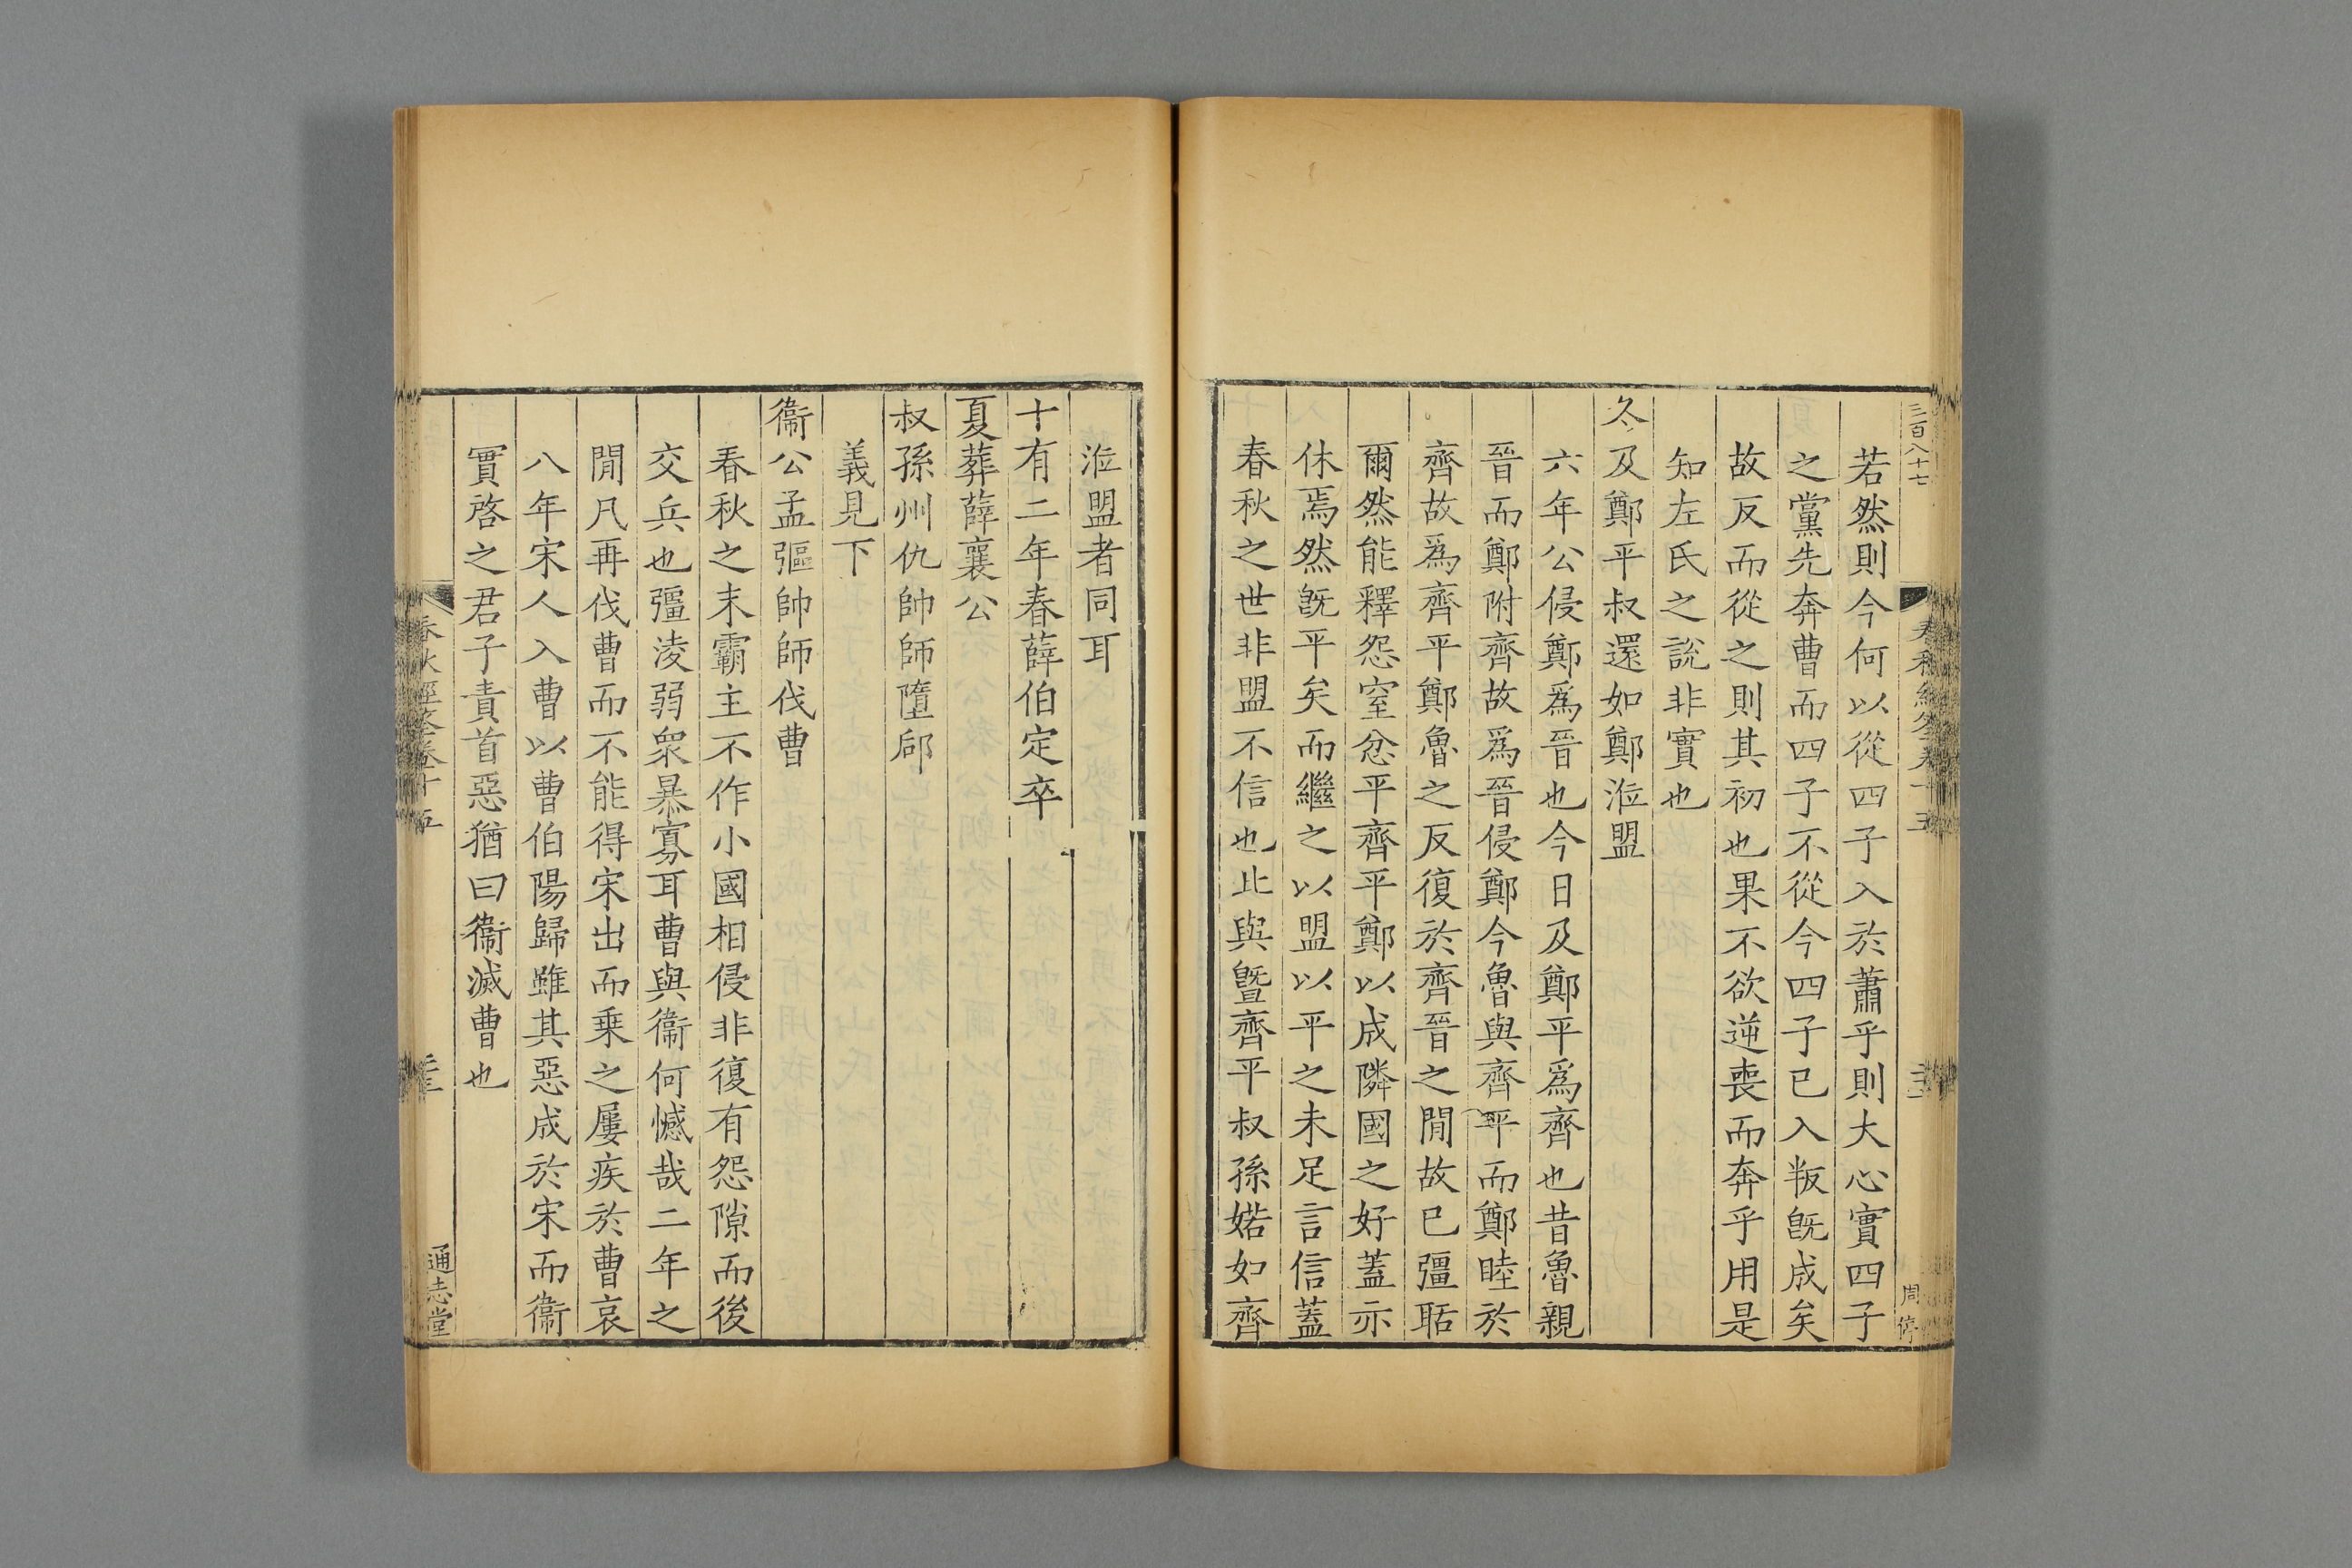 三百八十七
周停
若然則今何以從四子入於蕭乎則大心實四子
之黨先奔曹而四子不從今四子已入叛旣成矣
故反而從之則其初也果不欲逆喪而奔乎用是
知左氏之說非實也
冬及鄭平叔還如鄭涖盟
六年公侵鄭爲晉也今日及鄭平爲齊也昔魯親
晉而鄭附齊故爲晉侵鄭今魯與齊平而鄭睦於
齊故爲齊平鄭魯之反復於齊晉之閒故已彊聒
爾然能釋怨窒忿平齊平鄭以成隣國之好蓋亦
休焉然旣平矣而繼之以盟以平之未足言信蓋
春秋之世非盟不信也此與曁齊平叔孫婼如齊
涖盟者同耳
十有二年春薛伯定卒
夏葬薛襄公
叔孫州仇帥師墮郈
義見下
衞公孟彄帥師伐曹
春秋之末霸主不作小國相侵非復有怨隙而後
交兵也彊淩弱衆暴寡耳曹與衞何憾哉二年之
閒凡再伐曹而不能得宋出而乗之屢疾於曹哀
八年宋人入曹以曹伯陽歸雖其惡成於宋而衞
實啓之君子責首惡猶曰衞滅曹也
春秋經筌卷十五
通志堂